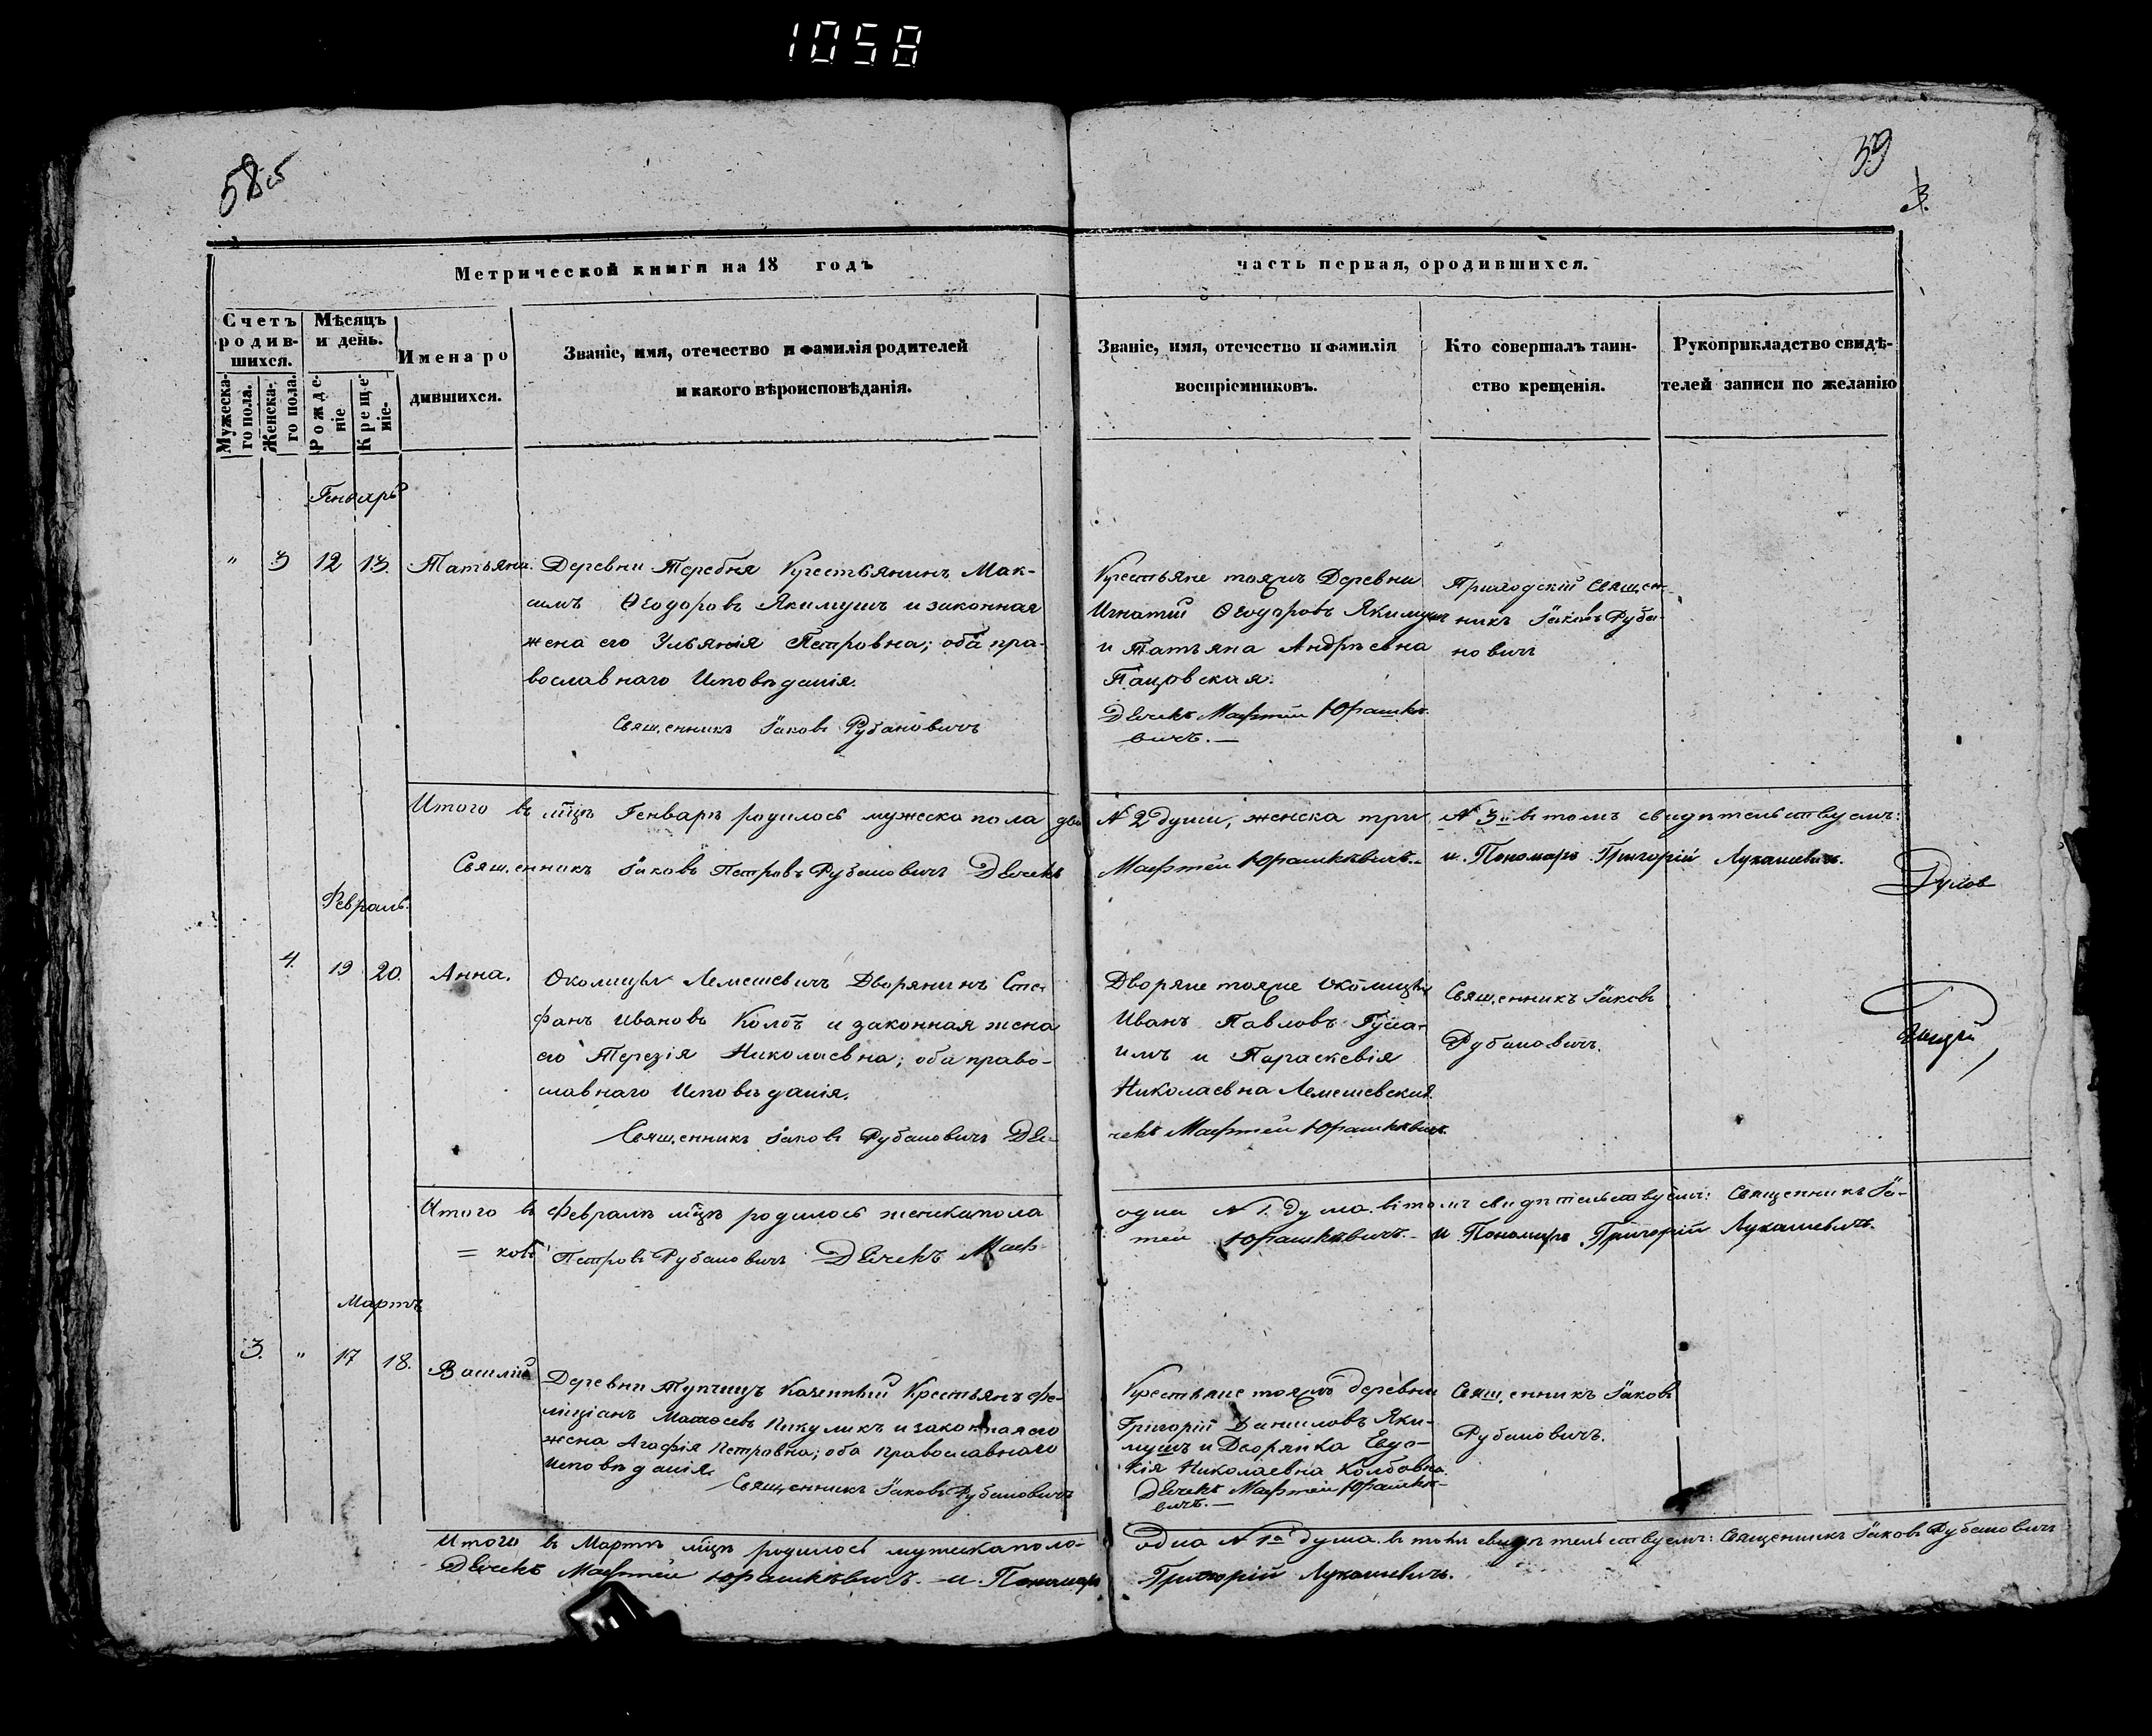 1058
58об
59
3.
Метрической книги на 18 годъ
часть первая, ородившихся.
Счетъ родив-
шихся.
Мѣсяцъ
и день.
Имена ро
дившихся.
Мужеска-
го пола.
Женска-
го пола.
Рожде-
ніе
Креще-
ніе.
Званіе, имя, отечество и фамилія родителей
и какого вѣроисповѣданія.
Званіе, имя, отечество и фамилія
воспріємниковъ.
Кто совершалъ таин-
ство крещенія.
Рукоприкладство свидѣ-
телей записи по желанію
Генварь
" 3 12 13. Татьяна.
Деревни Теребня Крестьянинъ Мак-
симъ Ѳеодоровъ Якимушъ и законная
жена его Ульянія Петровна; оба пра-
вославнаго Исповѣданія.
Священникъ Іаковъ Рубановичъ
Крестьяне тояжъ Деревни
Игнатій Ѳеодоровъ Якимушъ
и Татьяна Андреевна
Пацовская.
Дьячекъ Мафтей Юрашке-
вичъ.—
Приходскій Священ-
никъ Іаковъ Руба-
новичъ
Итого въ мцѣ Генварѣ родилось мужеска пола два
№ 2 души, женска три № 3 въ томъ свидѣтельствуемъ:
Священникъ Іаковъ Петровъ Рубановичъ Дьячекъ
Мафтей Юрашкевичъ. и Пономарь Григорій Лукашевичъ.
Февраль.
4. 19 20. Анна.
Околицы Лемешевичъ Дворянинъ Сте-
фанъ Ивановъ Колбъ и законная жена
его Терезія Николаевна; оба право-
славнаго Исповѣданія.
Священникъ Іаковъ Рубановичъ Дья-
Дворяне тояже Околицы
Иванъ Павловъ
и Параскевія
Николаевна Лемешевская.
чекъ Мафтей Юрашкевичъ.
Священникъ Іаковъ
Рубановичъ.
Итого въ Февралѣ мцѣ родилось женска пола
одна № 1. душа. въ томъ свидѣтельствуемъ: Священникъ Іа-
= ковъ Петровъ Рубановичъ Дьячекъ Маф-
тей Юрашкевичъ. и Пономарь Григорій Лукашевичъ.
Мартъ
3. " 17 18. Василій
Деревни Тупчицъ Казенный Крестьянъ Фе-
лиціанъ Матѳеевъ Пикуликъ и законная его
жена Агафія Петровна; оба Православнаго
Исповѣданія.
Священникъ Іаковъ Рубановичъ
Крестьяне тояжъ деревни
Григорій Даниловъ Яки-
мушъ и Дворянка Евдо-
кія Николаевна Колбовна.
Дьячекъ Мафтей Юрашке-
вичъ.—
Священникъ Іаковъ
Рубановичъ.
Итого въ Мартѣ мцѣ родилось мужеска пола-
одна № 1а душа. въ томъ свидѣтельствуемъ: Священникъ Іаковъ Рубановичъ
Дьячекъ Мафтей Юрашкевичъ. — и Пономарь
Григорій Лукашевичъ.